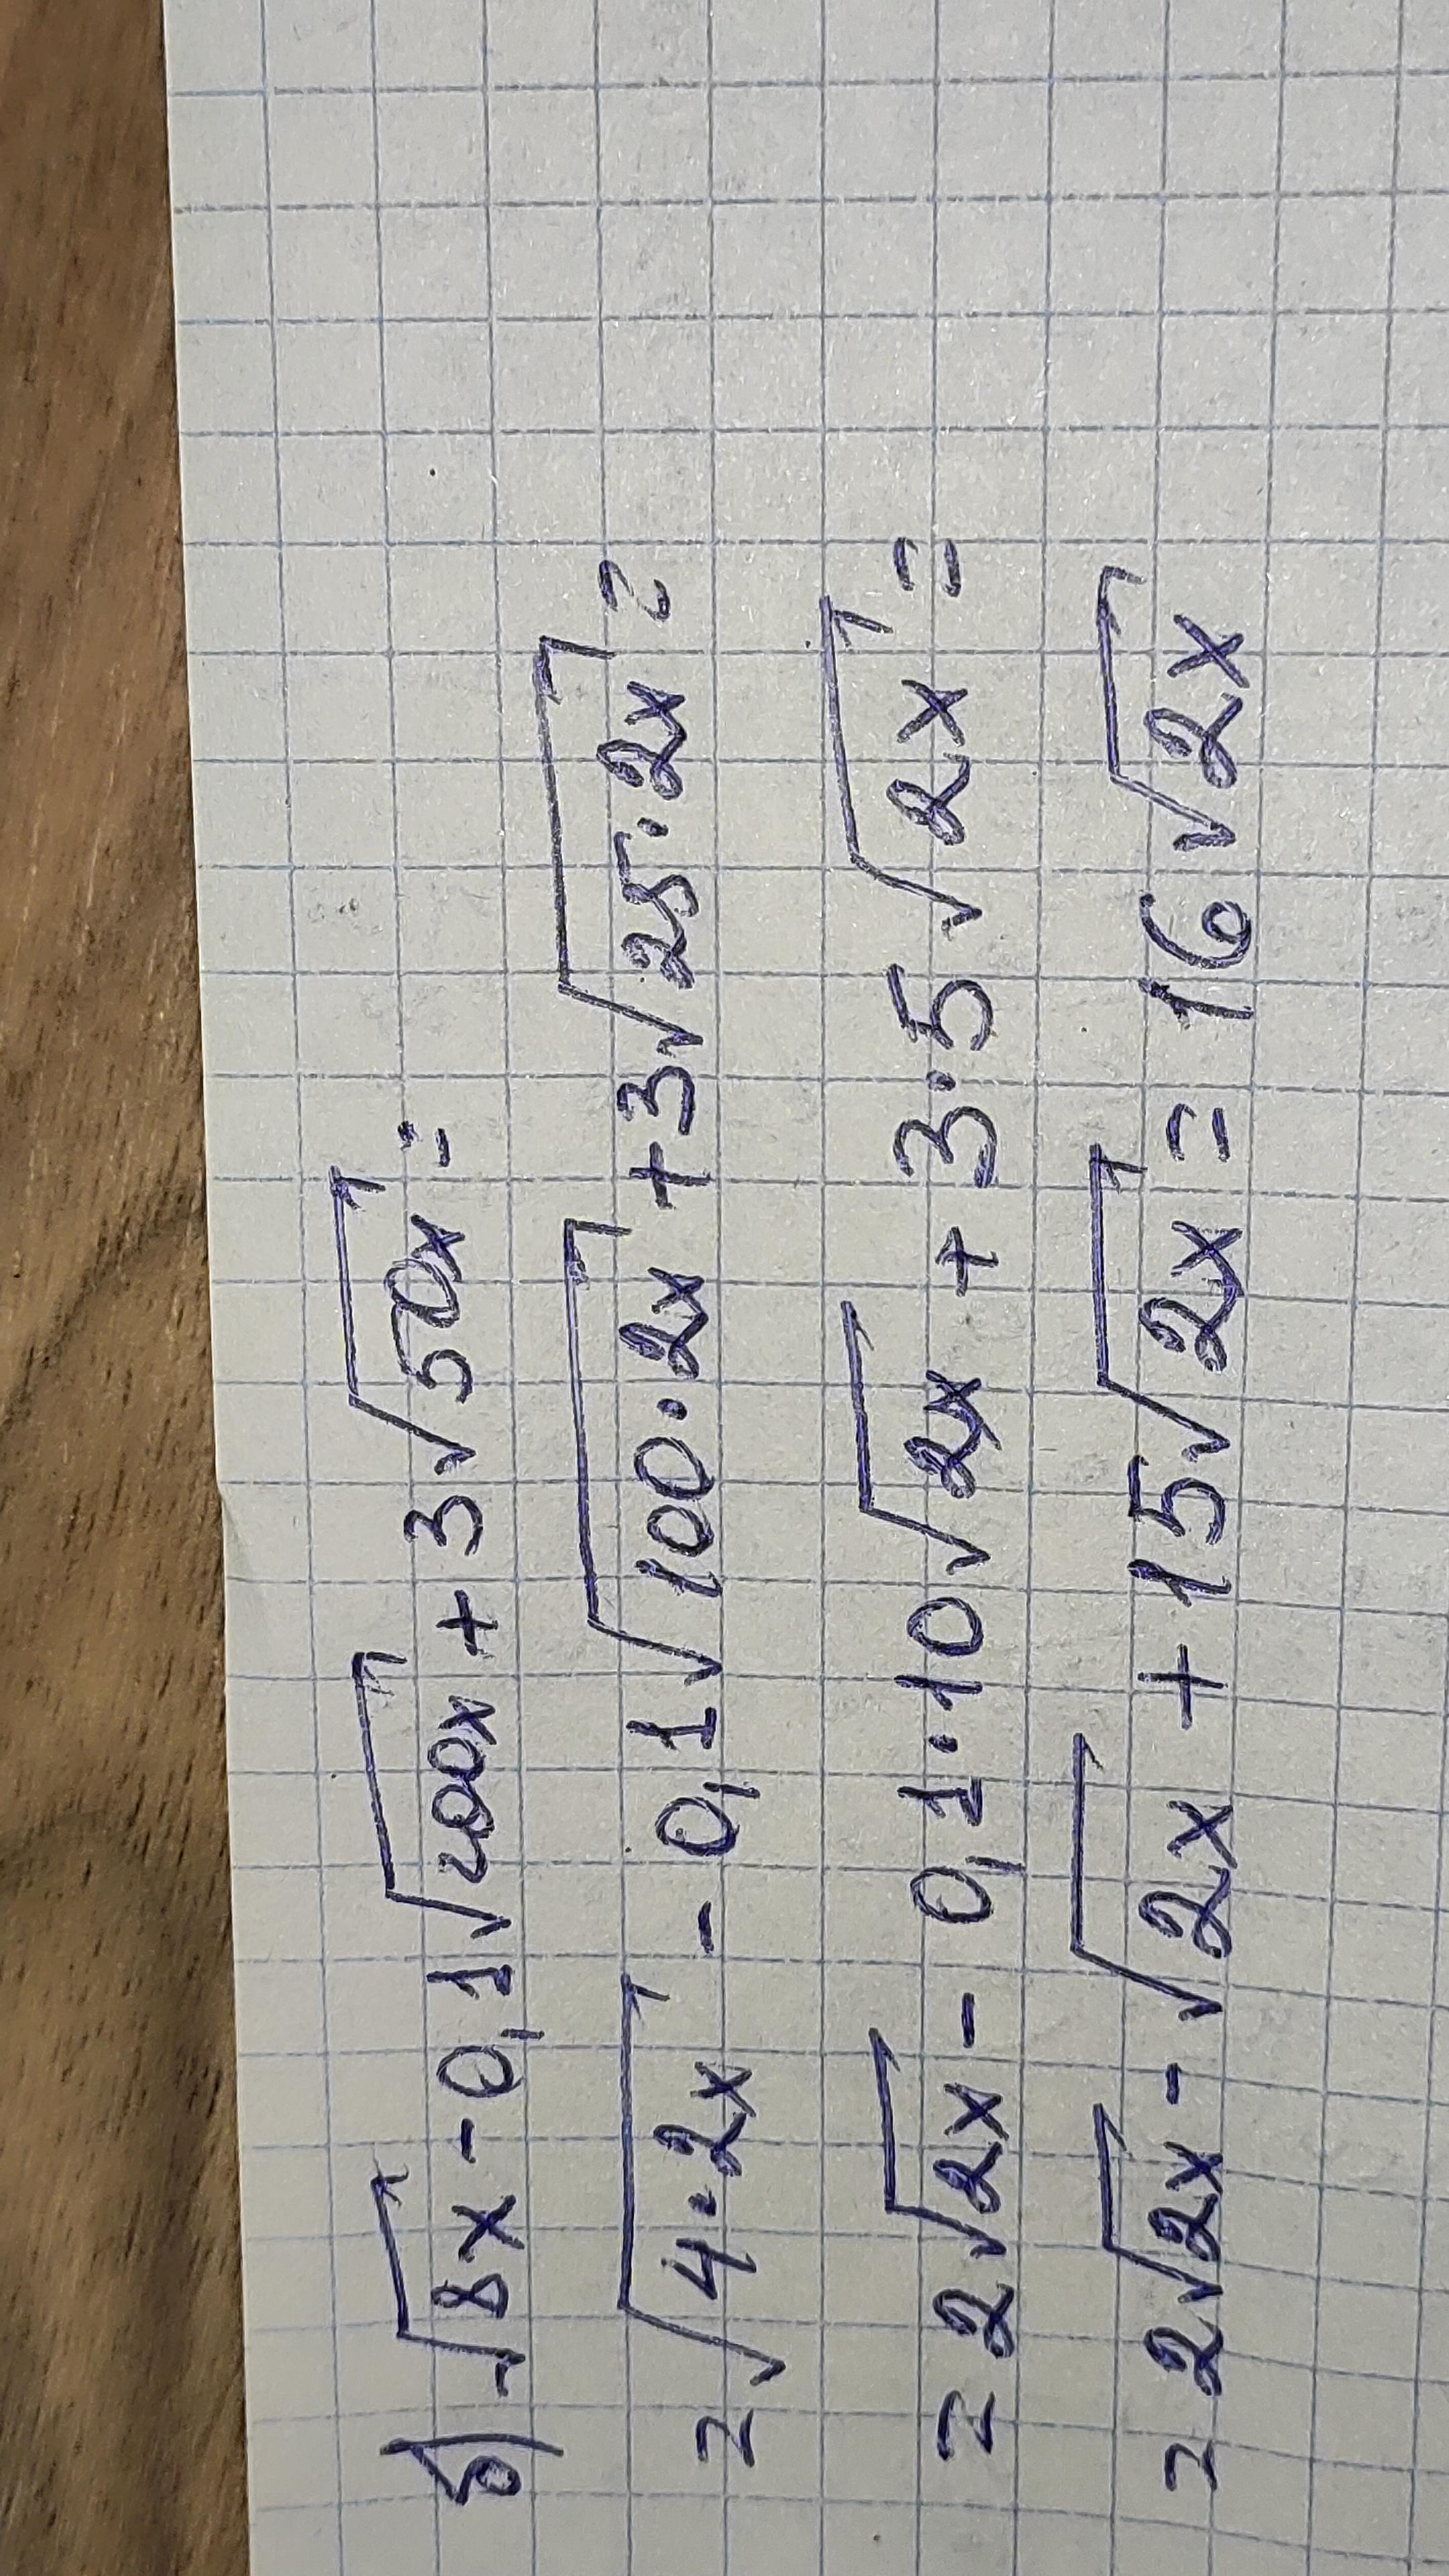 б) √8x - 0,1√200x + 3√50x =
= √4·2x - 0,1√100·2x + 3√25·2x =
= 2√2x - 0,1·10√2x + 3·5√2x =
= 2√2x - √2x + 15√2x = 16√2x